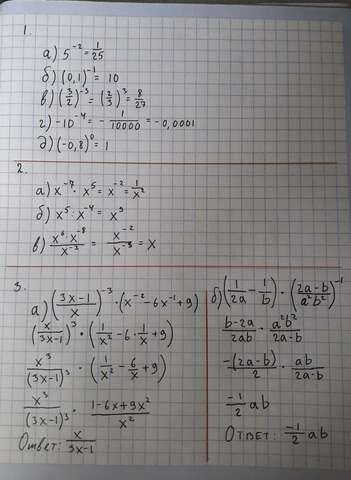 1.
а) 5^-2 = 1/25
б) (0,1)^-1 = 10
в) (3/2)^-3 = (2/3)^3 = 8/27
г) -10^-4 = - 1/10000 = -0,0001
д) (-0,8)^0 = 1
2.
а) x^-7 · x^5 = x^-2 = 1/x^2
б) x^5 : x^-4 = x^9
в) x^6 · x^-8 / x^-3 = x^-2 / x^-3 = x
3.
а) ((3x-1)/x)^-3 · (x^-2 - 6x^-1 + 9)
(x/(3x-1))^3 · (1/x^2 - 6 · 1/x + 9)
x^3/(3x-1)^3 · (1/x^2 - 6/x + 9)
x^3/(3x-1)^3 · (1-6x+9x^2)/x^2
Ответ: x/(3x-1)
б) (1/2a - 1/b) · ((2a-b)/(a^2b^2))^-1
(b-2a)/2ab · a^2b^2/(2a-b)
-(2a-b)/2 · ab/(2a-b)
-1/2 ab
Ответ: -1/2 ab